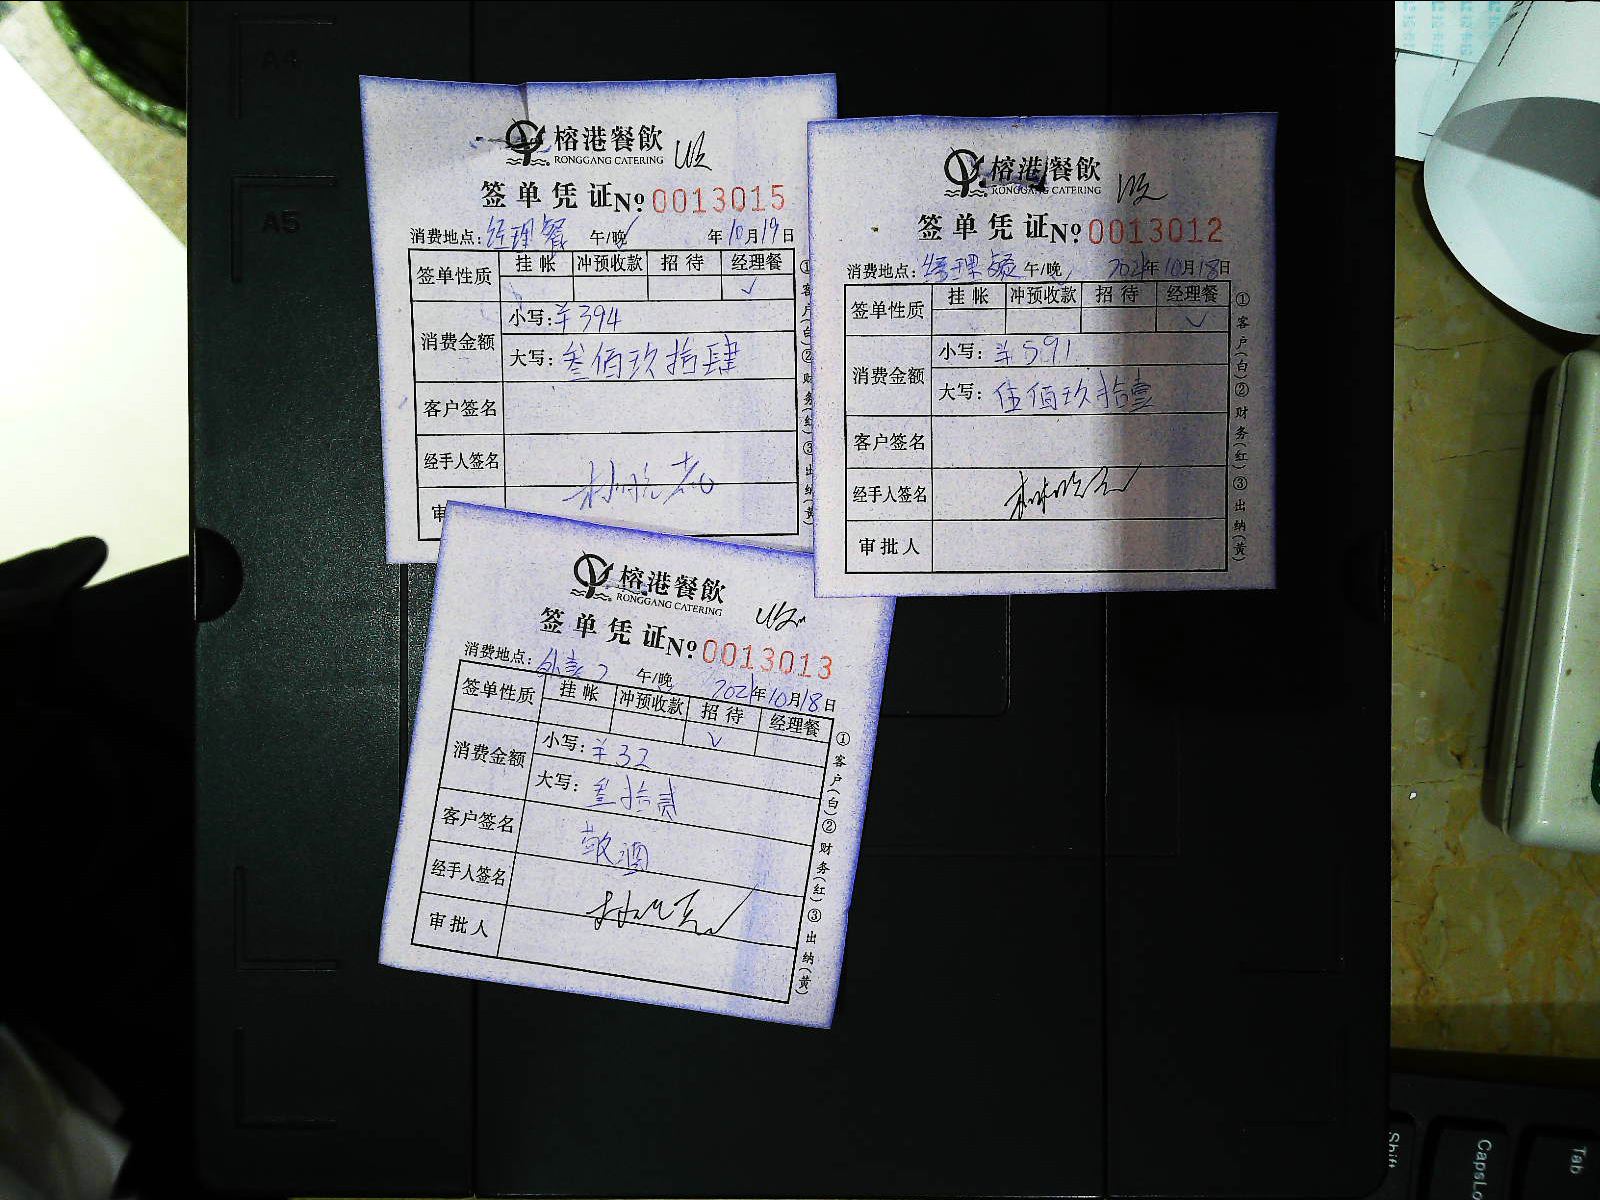 A4
A5
榕港餐飲
RONGGANG CATERING
签单凭证 №0013015
消费地点:经理餐 午/晚 年10月19日
签单性质 挂帐 冲预收款 招待 经理餐
✓
消费金额
小写:¥394
大写:叁佰玖拾肆
客户签名
经手人签名
审
①客户(白)②财务(红)③出纳(黄)
榕港餐飲
RONGGANG CATERING
签单凭证 №0013012
消费地点: 午/晚 2021年10月18日
签单性质 挂帐 冲预收款 招待 经理餐
✓
消费金额
小写:¥591
大写:伍佰玖拾壹
客户签名
经手人签名
审批人
①客户(白)②财务(红)③出纳(黄)
榕港餐飲
RONGGANG CATERING
签单凭证 №0013013
消费地点: 午/晚 2021年10月18日
签单性质 挂帐 冲预收款 招待 经理餐
✓
消费金额
小写:¥32
大写:叁拾贰
客户签名 敬酒
经手人签名
审批人
①客户(白)②财务(红)③出纳(黄)
Shift
CapsLo
Tab